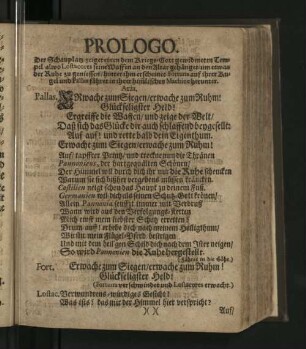 PROLOGO.
Der Schauplatz zeiget einen dem Kriegs-Gott gewidmeten Tem-
pel alwo Lostacus seine Waffen an den Altar gehänget um etwas
der Ruhe zu geniessen; hinter ihm erscheinet Fortuna auf ihrer Ku-
gel und Pallas
Aria.
Pallas. ERwache zum Siegen/erwache zum Ruhm!
Glückseligster Held!
Ergreiffe die Waffen/und zeige der Welt/
Daß sich das Glücke dir auch schlaffend beygesellt:
Auf auf! und rette bald dein Eigenthum.
Erwache zum Siegen/erwache zum Ruhm!
Auf! tapffrer Printz/und trockne von die Thränen
Pannoniens, der hartgequälten Schönen/
Der Himmel will durch dich ihr nur die Ruhe schencken
Warum sie sich bißher vergebens müssen kräncken.
Castilien neigt schon das Haupt zu deinem Fuß.
Germanien will dich als seinen Schutz-Gott krönen/
Allein Pannonien seuffzt immer mit Verdruß
Wann wird aus den Verfolgungs-Ketten
Mich erst mein liebster Schutz erretten/
Drum auf! erhebe dich nach meinem Heiligthum/
Wo ihn mein Flügel-Pferd besteigen
Und mit dem heilgen Schild dich nach dem Ister neigen/
So wird Pannonien die Ruhe hergestellt.
(Fähret in die Höhe.)
Fort. Erwache zum Siegen/erwache zum Ruhm!
Glückseligster Held!
(Fortuna verschwindet und Lostacus erwacht.)
Lostac. Verwunderns-würdiges Gesicht!
Was ists! das mir der Himmel hier verspricht?
)( )( Auf/